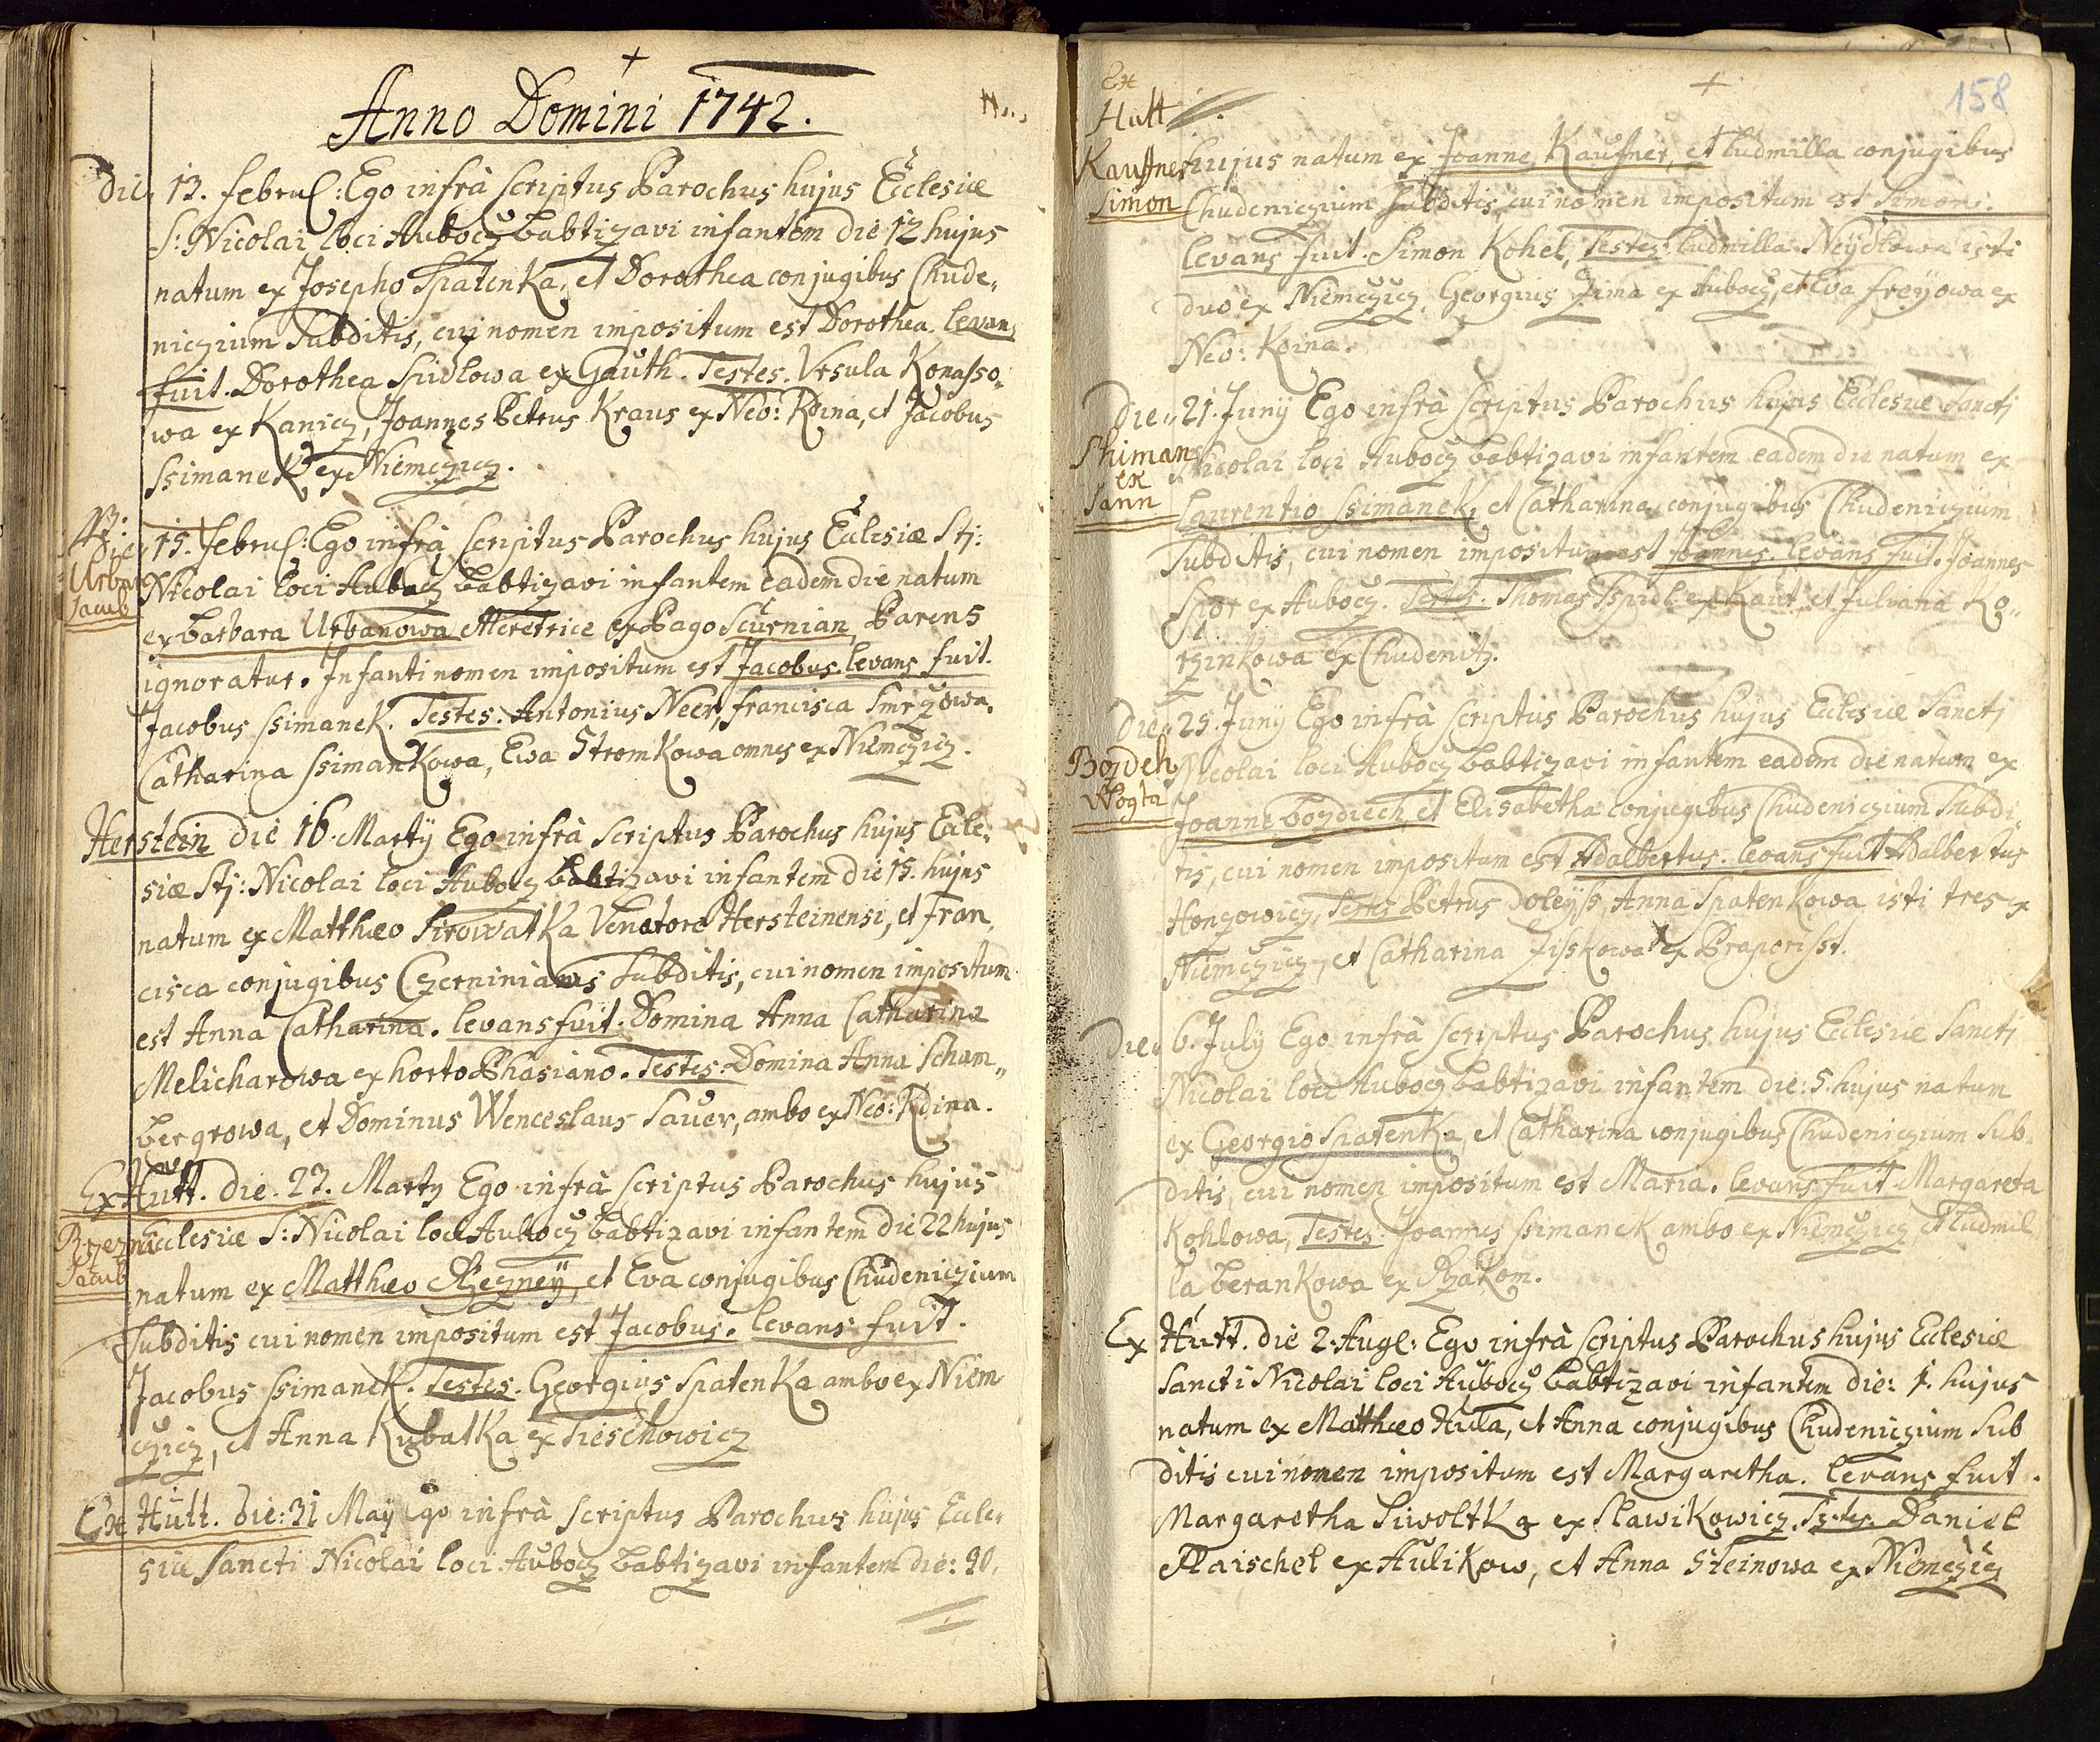 Anno Domini 1742.
die 13. februl: Ego infrà scriptus Parochus hujus Ecclesiæ
S: Nicolai loci Aubocz babtizavi infantem die 12 hujus
natum ex Josepho Spatenka, et Dorothea conjugibus Chude„
niczium Subditis, cui nomen impositum est Dorothea. levans
fuit. Dorothea Spidlowa ex Gauth. Testes. Vrsula Konasso„
wa ex Kanicz, Joannes Petrus Kraus ex Neo: Kdina, et Jacobus
Ssimanek ex Niemczicz.
die 15. februl: Ego infrà Scriptus Parochus hujus Eclesiæ Stj:
Urban
Jacub
Nicolai loci Aubocz babtizavi infantem eadem die natum
ex barbara Urbanowa Meretrice ex Pago Scurnian, Parens
ignoratur. Infanti nomen impositum est Jacobus. levans fuit.
Jacobus Ssimanek. Testes. Antonius Neer, francisca Smrzowa.
Catharina Ssimankowa, Ewa Stromkowa omnes ex Niemczicz.
Herstein die 16. Martÿ Ego infrà Scriptus Parochus hujus Eccle„
siæ Stj: Nicolai loci Aubocz babtizavi infantem die 15. hujus
natum ex Matthæo Sirowatka Venatore Hersteinensi, et Fran„
cisca conjugibus Czerninianis Subditis, cui nomen impositum
est Anna Catharina. levans fuit. Domina Anna Catharina
Melicharowa ex horto Phasiano. Testes. Domina Anna Scham„
bergrowa, et Dominus Wenceslaus Sauer, ambo ex Neo: Kdina.
Ex Hutt. die. 23. Marty Ego infrà scriptus Parochus hujus
Rzezni
Jacub
Ecclesiæ S: Nicolai loci Aubocz babtizavi infantem die 22 hujus
natum ex Matthæo Rzezneÿ, et Eva conjugibus Chudeniczium
Subditis cui nomen impositum est Jacobus. levans fuit.
Jacobus Ssimanek. Testes. Georgius Spatenka ambo ex Niem„
czicz, et Anna Kubatka ex Tieschowicz
Ex Hutt. die: 31 Maÿ Ego infrà scriptus Parochus hujus Eccle„
siæ Sancti Nicolai loci Aubocz babtizavi infantem die: 30.
158
Ex
Hutt
Kauffner
Simon
hujus natum ex Joanne Kauffner, et ludmilla conjugibus
Chudeniczium Subditis, cui nomen impositum est Simon.
levans fuit. Simon Kohel, Testes. ludmilla Neÿdlowa isti
duo ex Niemczicz, Georgius Zima ex Aubocz, et Eva freÿowa ex
Neo: Kdina.
Die„ 21. Junÿ Ego infrà scriptus Parochus hujus Ecclesiæ Sanctj
Shiman
ex
Jann
Nicolai loci Aubocz babtizavi infantem eadem die natum ex
Laurentio Ssimanek, et Catharina conjugibus Chudeniczium
Subditis, cui nomen impositum est Joannes. levans fuit. Joannes
Spor ex Aubocz. Testes. Thomas Sspidl ex Kaut et Juliana Ko„
rzinkowa ex Chudenitz.
Die„ 25. Junÿ Ego infrà scriptus Parochus hujus Ecclesiæ Sanctj
Bozdeh
Wogta
Nicolai loci Aubocz babtizavi infantem eadem die natum ex
Joanne bozdiech, et Elisabetha conjugibus Chudeniczium Subdi„
tis, cui nomen impositum est Adalbertus. levans fuit Adalbertus
Honzowicz, Testes Petrus doleÿss Anna Spatenkowa isti tres ex
Niemczicz, et Catharina Zisskowa ex Praporisst.
Die„ 6. Julÿ Ego infrà scriptus Parochus hujus Ecclesiæ Sanctj
Nicolai loci Aubocz babtizavi infantem die: 5. hujus natum
ex Georgio Spatenka, et Catharina conjugibus Chudeniczium Sub„
ditis, cui nomen impositum est Maria. levans fuit Margareta
Kohlowa, Testes. Joannes Ssimanek ambo ex Niemczicz, et ludmil„
la berankowa ex Rzakom.
Ex Hutt. die 2. Augl: Ego infrà scriptus Parochus hujus Ecclesiæ
Sancti Nicolai loci Aubocz babtizavi infantem die: 1. hujus
natum ex Matthæo Hula, et Anna conjugibus Chudeniczium Sub
ditis cui nomen impositum est Margaretha. levans fuit.
Margaretha Siwoltka ex Slawikowicz. Testes. Daniel
Flaischel ex Hulikow, et Anna Steinowa ex Niemczicz